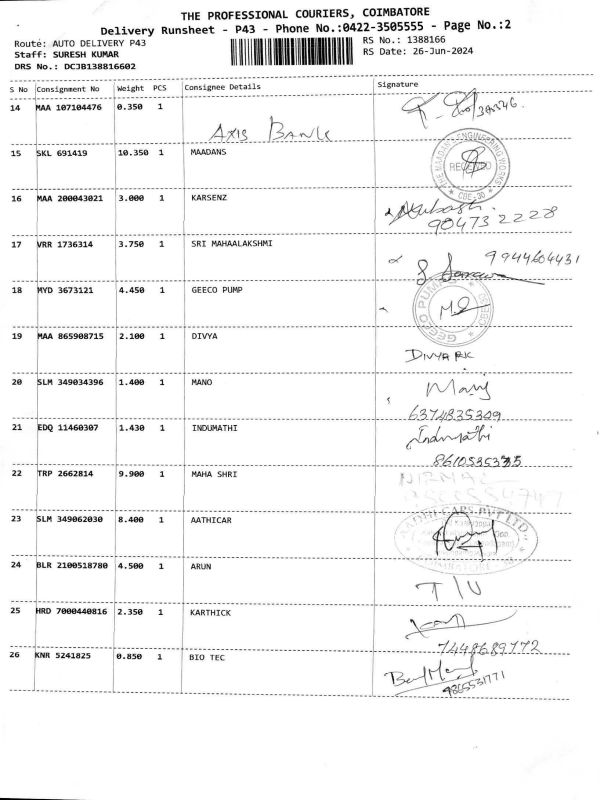 THE PROFESSIONAL COURIERS, COIMBATORE
Delivery Runsheet - P43 - Phone No.:0422-3505555 - Page No.:2
Route: AUTO DELIVERY P43
RS No.: 1388166
Staff: SURESH KUMAR
RS Date: 26-Jun-2024
DRS No.: DCJB138816602
S No Consignment No Weight PCS Consignee Details Signature
14 MAA 107104476 0.350 1
AXIS BANK
15 SKL 691419 10.350 1 MAADANS
THE MAADANS ENGINEERING WORKS
RECEIVED
CBE-30
16 MAA 200043021 3.000 1 KARSENZ
90473 22228
17 VRR 1736314 3.750 1 SRI MAHAALAKSHMI
9944604431
18 MYD 3673121 4.450 1 GEECO PUMP
GEECO PUMPS
19 MAA 865908715 2.100 1 DIVYA
DIVYA RK
20 SLM 349034396 1.400 1 MANO
Manj
6374835309
21 EDQ 11460307 1.430 1 INDUMATHI
Indumathi
8610535335
22 TRP 2662814 9.900 1 MAHA SHRI
NIRMAL
23 SLM 349062030 8.400 1 AATHICAR
CARS PVT LTD
24 BLR 2100518780 4.500 1 ARUN
25 HRD 7000440816 2.350 1 KARTHICK
7448689772
26 KNR 5241825 0.850 1 BIO TEC
9865531771